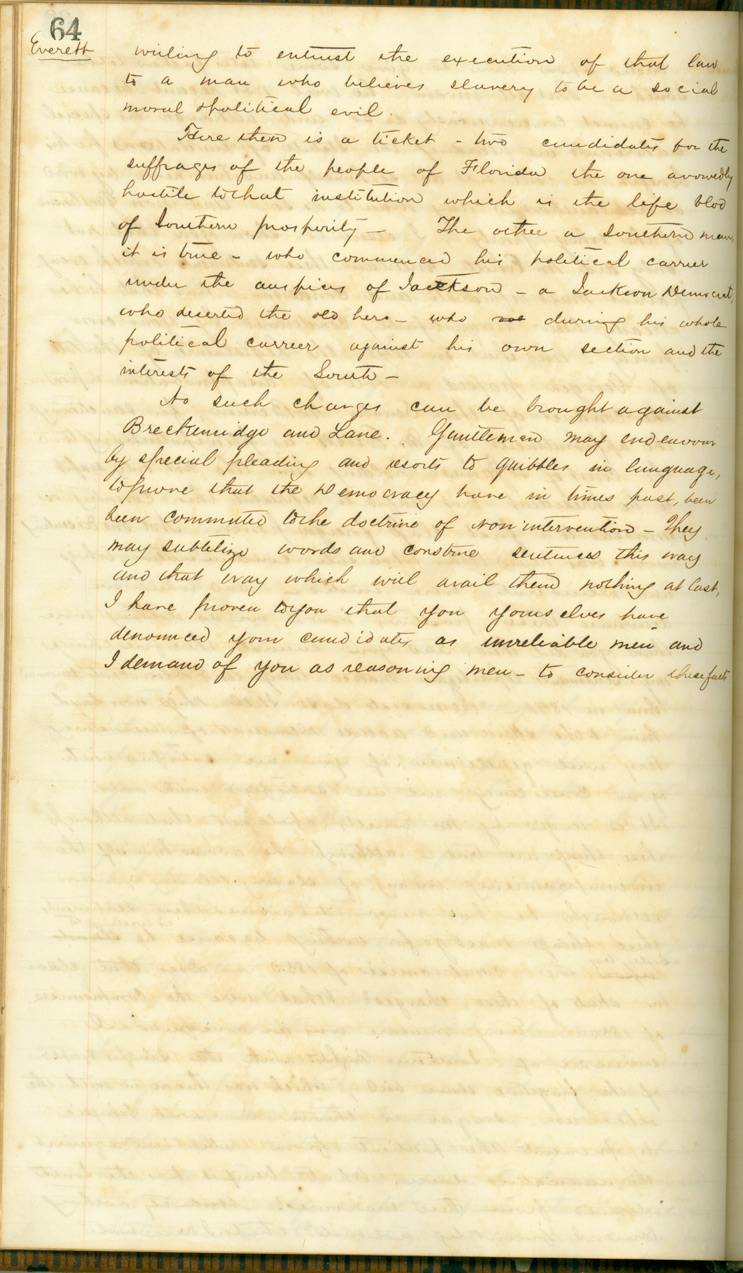 64
Everett
willing to entrust the execution of that law
to a man who believes slavery to be a social
moral & political evil.
Here then is a ticket - two candidates for the
suffrages of the people of Florida the one avowedly
hostile to that institution which is the life bloo
of Southern prosperity — The other a southern man,
it is true - who commenced his political carrier
under the auspices of Jackson - a Jackson Democrat,
who deserted the old hero - who during his whole
political carreer against his own section and the
interests of the South -
No such charges can be brought against
Breckenridge and Lane. Gentlemen may endeavour
by special pleading and resorts to quibbles in language,
to prove that the Democracy have in times past, been
been committed to the doctrine of non intervention - They
may subtelize words and construe sentences this way
and that way which will avail them nothing at last,
I have proven to you that you yourselves have
denounced your candidates as unreliable men and
I demand of you as reasoning men - to consider these facts